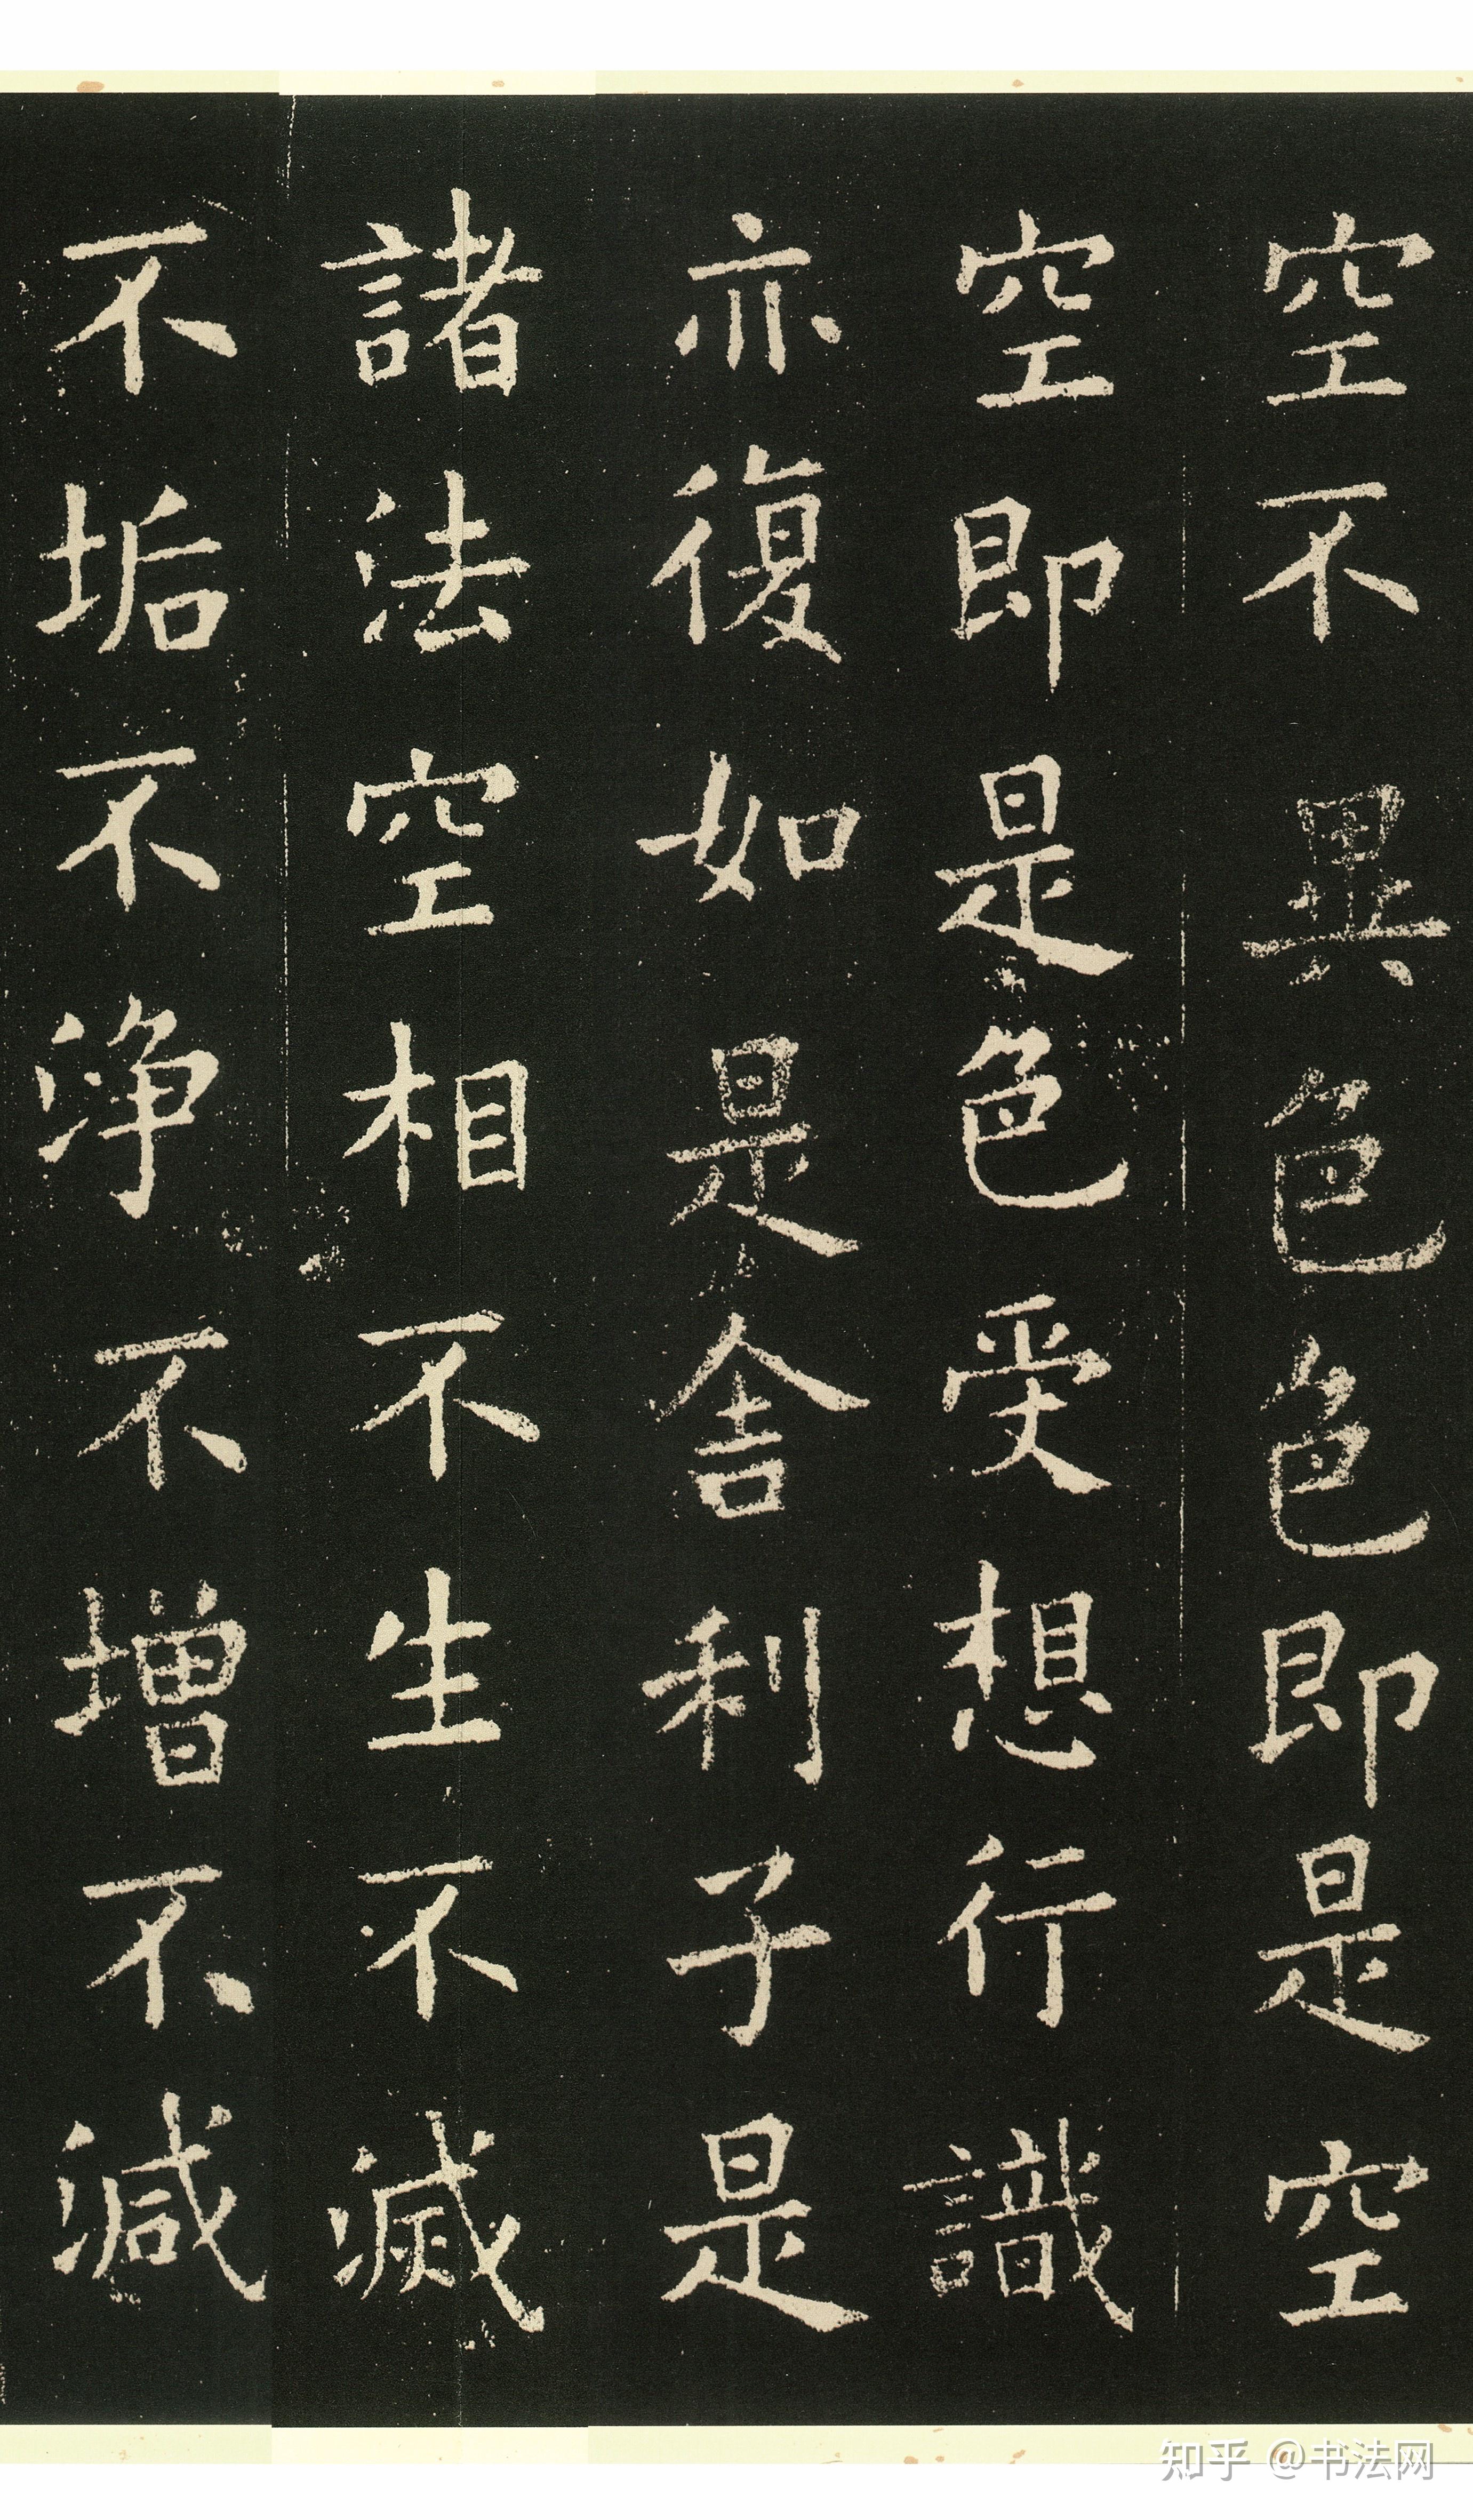 空不異色色即是空
空即是色受想行識
亦復如是舍利子是
諸法空相不生不滅
不垢不淨不增不減
知乎 @书法网